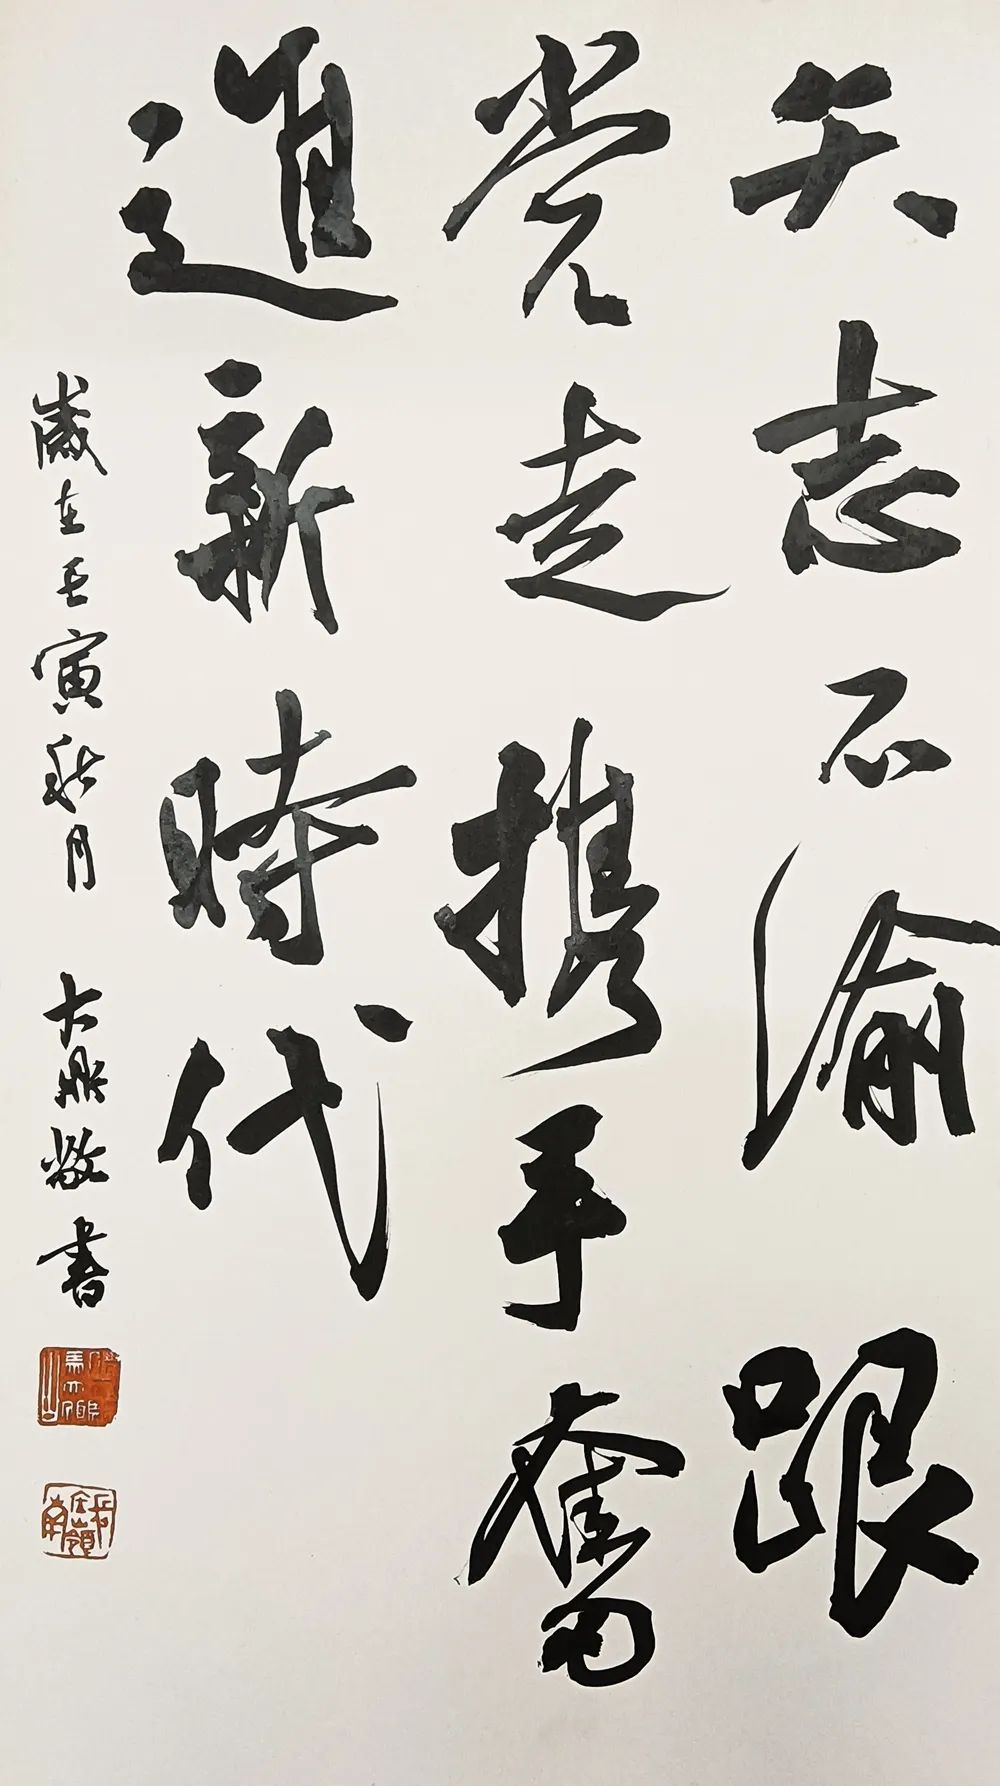 矢志不渝跟
党走携手奮
進新時代
歲在壬寅秋月 大鼎敬書